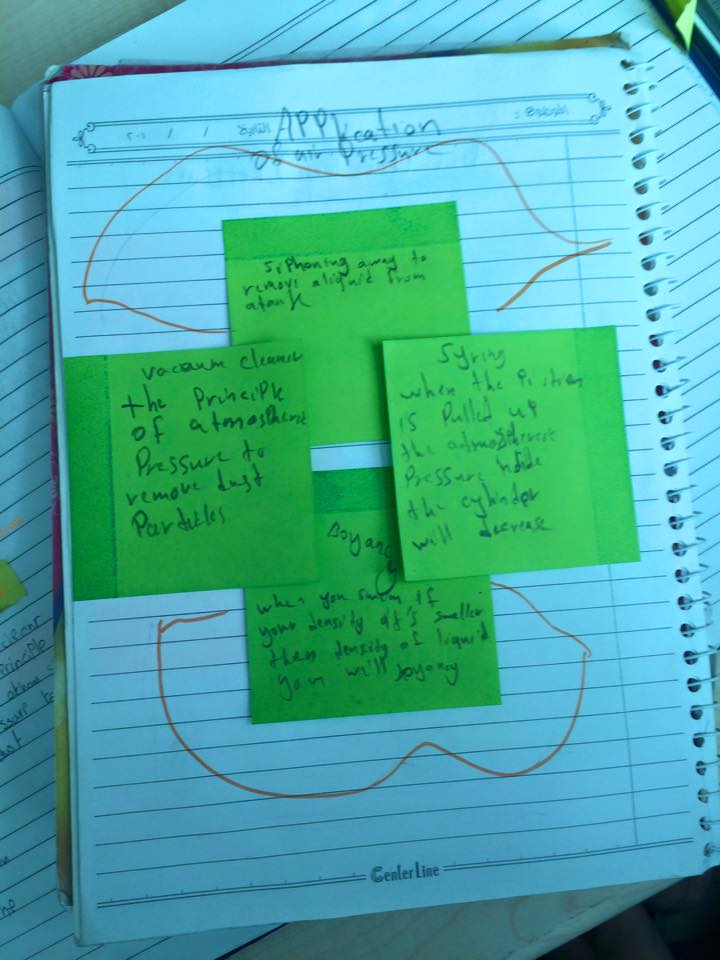 الموضوع:
التاريخ / / ٢٠١
Application
of air Pressure
Siphoning away to
remove aliquid from
atank
vacuum cleaner
the principle
of atmospheric
Pressure to
remove dust
Particles.
Syring
when the Piston
is Pulled up
the atmospheric
Pressure inside
the cylinder
will decrease
Boyancy
when you swim if
your density it's smaller
than density of liquid
you will boyancy
CenterLine